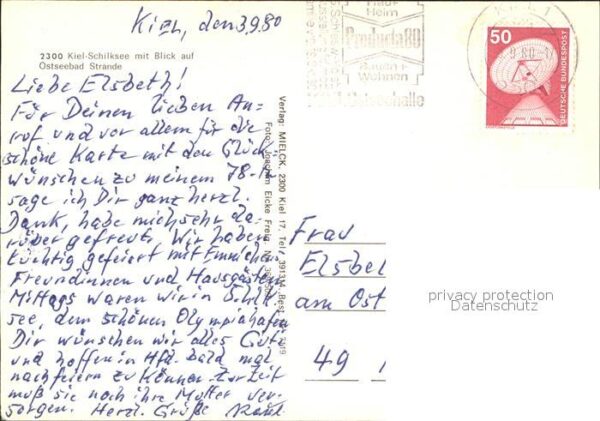 Kiel, den 3.9.80
2300 Kiel-Schilksee mit Blick auf
Ostseebad Strande
Liebe Elsbeth!
Für Deinen lieben An-
ruf und vor allem für die
schöne Karte mit den Glück
wünschen zu meinem 78.
sage ich Dir ganz herzl.
Dank, habe mich sehr da-
rüber gefreut. Wir haben
tüchtig gefeiert mit
Freundinnen und Hausgästen
Mittags waren wir in Schilk
see, dem schönen Olympiahafen
Dir wünschen wir alles Gute
und hoffen in Hfd. bald mal
nachfeiern zu können. Zur Zeit
muß sie noch ihre Mutter ver-
sorgen. Herzl. Grüße
Verlag MIELCK, 2300 Kiel 17, Tel. 391314 Best.
Foto: Joachim Eicke Freig.
Heim
Produkta 80
Wohnen
Ostseehalle
50
DEUTSCHE BUNDESPOST
Frau
Elsbe
am Ost
49
privacy protection
Datenschutz